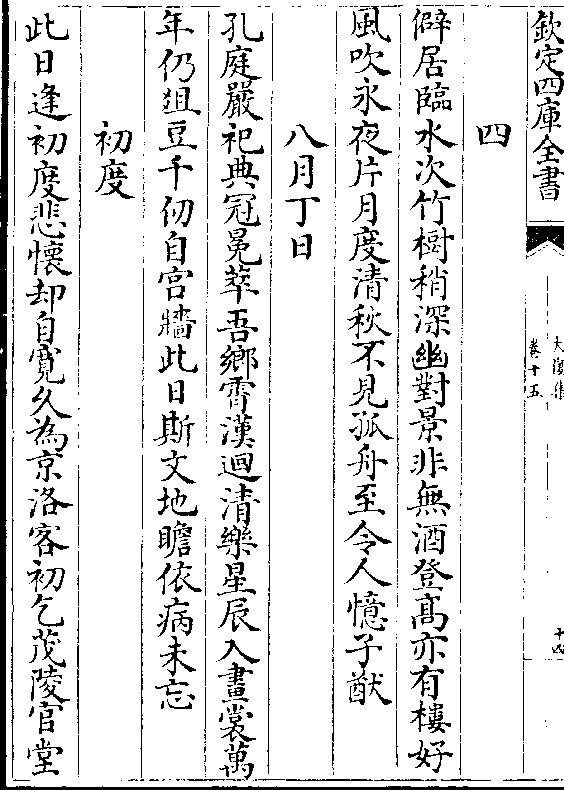 欽定四庫全書
大復集
卷十五
十四
四
僻居臨水次竹樹稍深幽對景非無酒登高亦有樓好
風吹永夜片月度清秋不見孤舟至令人憶子猷
八月丁日
孔庭嚴祀典冠冕萃吾鄉霄漢迴清樂星辰入畫裳萬
年仍俎豆千仞自宮牆此日斯文地瞻依病未忘
初度
此日逢初度悲懷却自寬久為京洛客初乞茂陵官堂